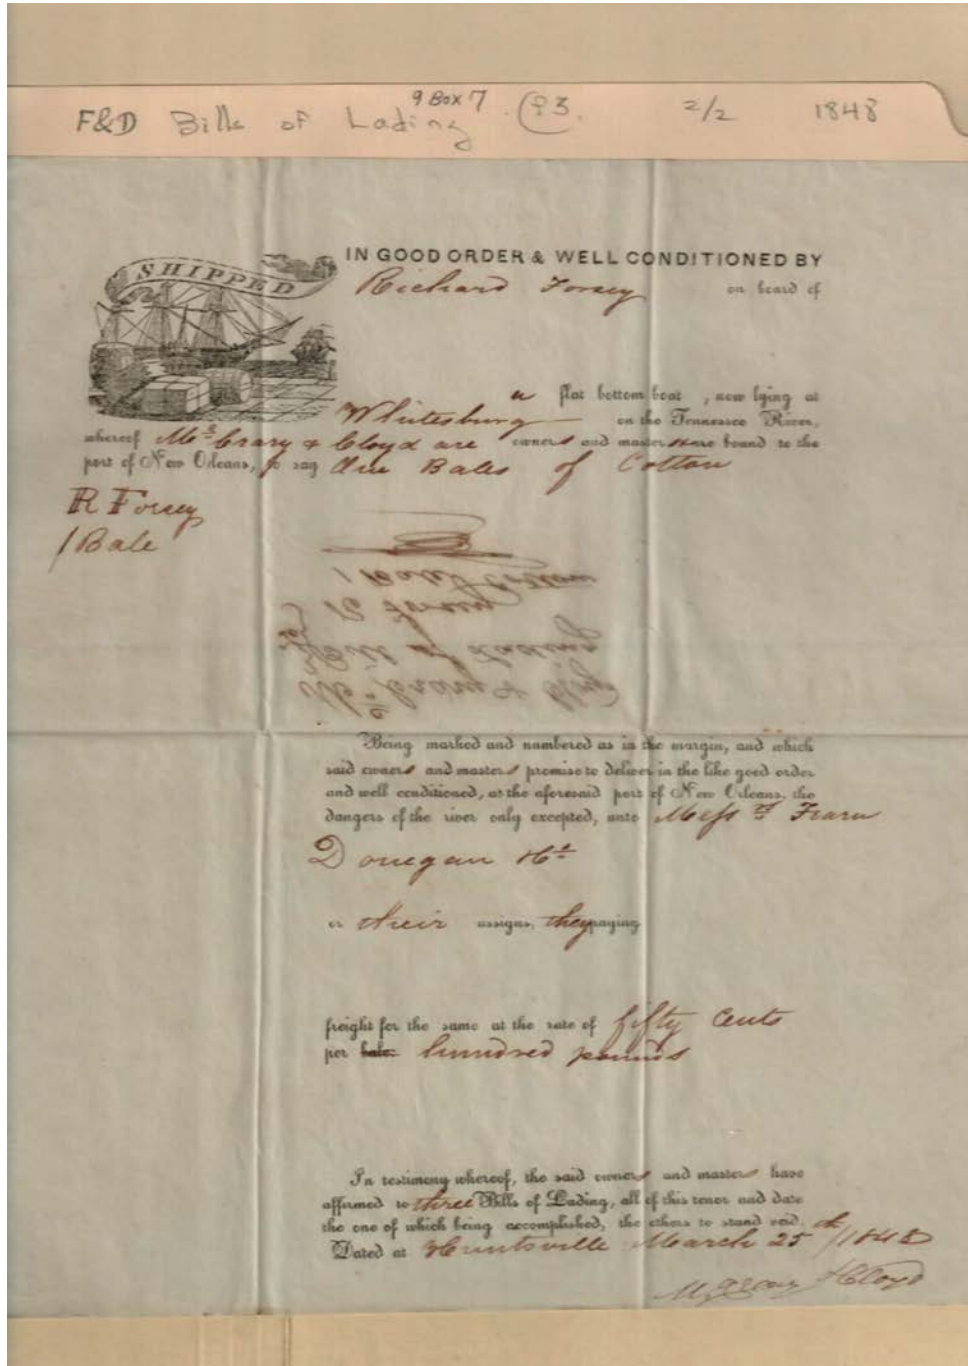 9 Box 7
F&D Bills of Lading f3. 2/2 1848
SHIPPED
IN GOOD ORDER & WELL CONDITIONED BY
Richard Forsey on board of
a flat bottom boat, now lying at
Whitesburg on the Tennessee River,
whereof McCrary & Cloyd are owners and masters are bound to the
port of New Orleans, to say One Bales of Cotton
R Forsey
1 Bale
1 Bale Cotton
R Forsey
Bill of Lading
McCrary &
Being marked and numbered as in the margin, and which
said owners and masters promise to deliver in the like good order
and well conditioned, at the aforesaid port of New Orleans, the
dangers of the river only excepted, unto Messrs Fearn
Donegan &
or their assigns, they paying
freight for the same at the rate of fifty Cents
per bale hundred pounds
In testimony whereof, the said owners and masters have
affirmed to three Bills of Lading, all of this tenor and date
the one of which being accomplished, the others to stand void.
Dated at Huntsville March 25th 1848
McCrary & Cloyd